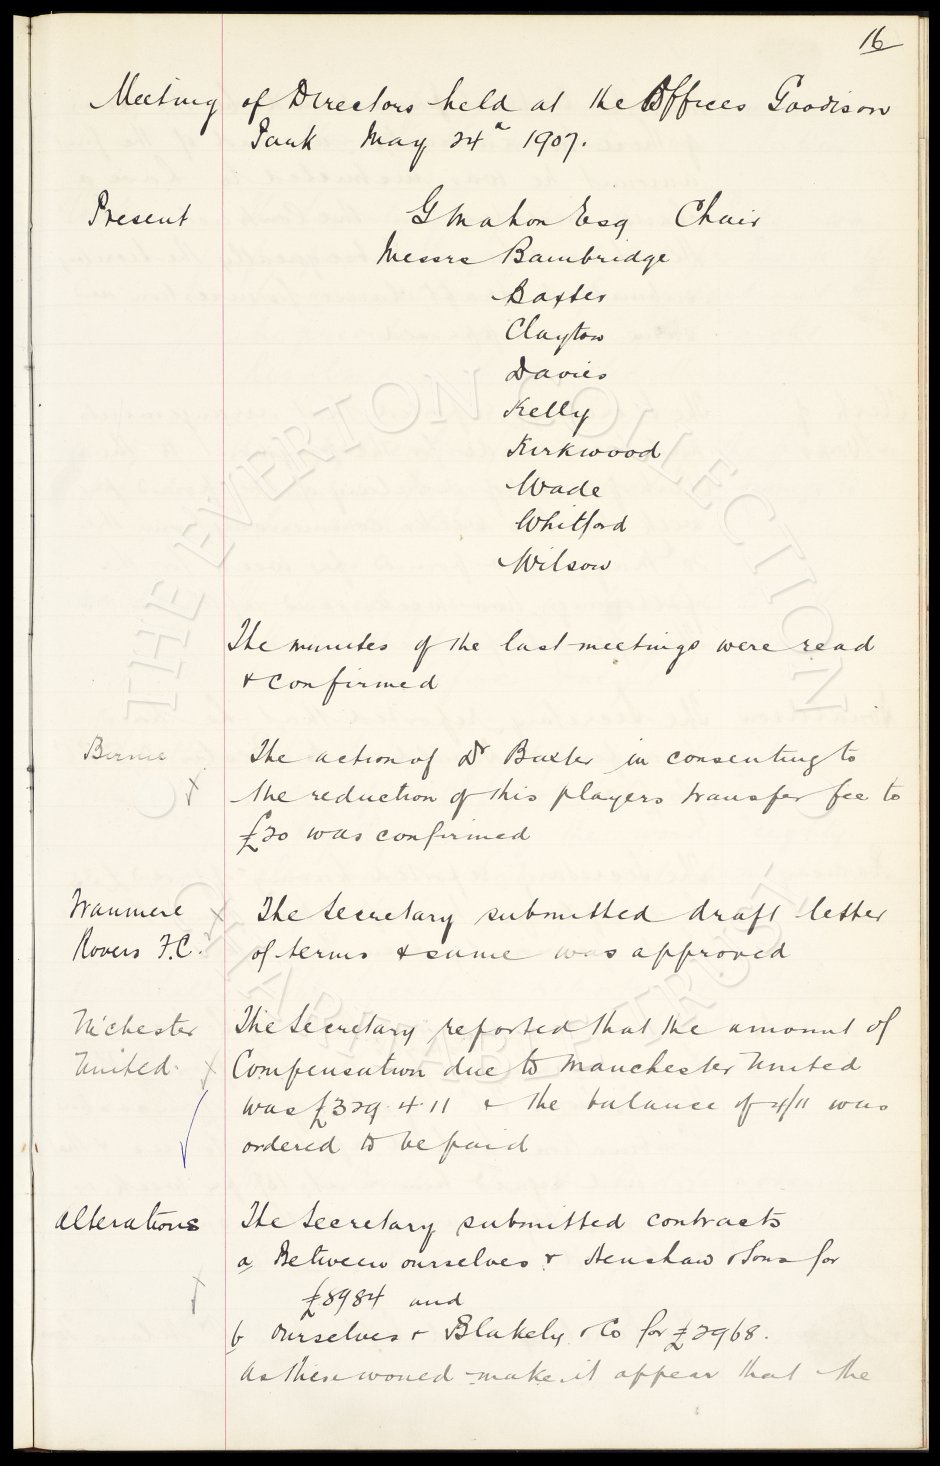 16
Meeting of Directors held at the Offices Goodison
Park May 24th 1907.
Present G Mahon Esq Chair
Messrs Bainbridge
Baxter
Clayton
Davies
Kelly
Kirkwood
Wade
Whitford
Wilson
The minutes of the last meetings were read
& confirmed
Birnie The action of Dr Baxter in consenting to
the reduction of this players transfer fee to
£20 was confirmed
Tranmere The Secretary submitted draft letter
Rovers F.C. of terms & same was approved
M'chester The Secretary reported that the amount of
United. Compensation due to Manchester United
was £329.4.11 & the balance of 4/11 was
ordered to be paid
Alterations The Secretary submitted contracts
a Between ourselves & Henshaw & Sons for
£8984 and
b Ourselves & Blakely & Co for £2968.
As these would make it appear that the
© THE EVERTON COLLECTION
CHARITABLE TRUST